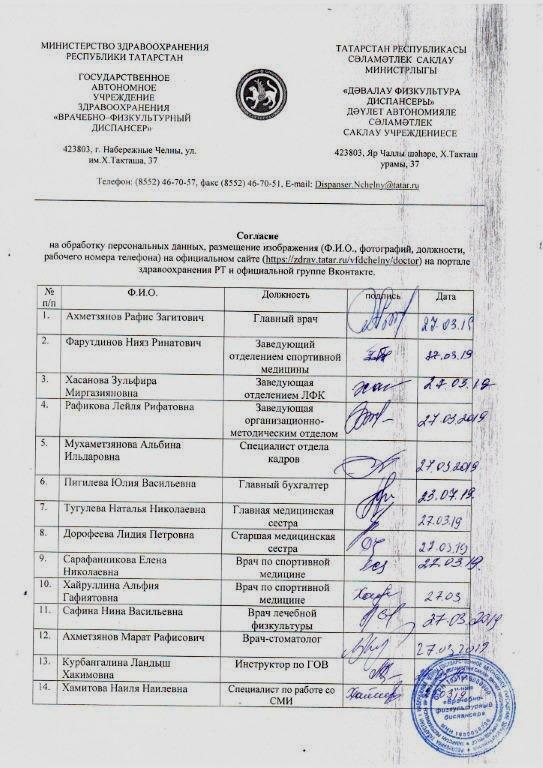 МИНИСТЕРСТВО ЗДРАВООХРАНЕНИЯ
РЕСПУБЛИКИ ТАТАРСТАН
ГОСУДАРСТВЕННОЕ
АВТОНОМНОЕ
УЧРЕЖДЕНИЕ
ЗДРАВООХРАНЕНИЯ
«ВРАЧЕБНО-ФИЗКУЛЬТУРНЫЙ
ДИСПАНСЕР»
423803, г. Набережные Челны, ул.
им.Х.Такташа, 37
ТАТАРСТАН РЕСПУБЛИКАСЫ
СӘЛАМӘТЛЕК САКЛАУ
МИНИСТРЛЫГЫ
«ДӘВАЛАУ ФИЗКУЛЬТУРА
ДИСПАНСЕРЫ»
ДӘҮЛЕТ АВТОНОМИЯЛЕ
СӘЛАМӘТЛЕК
САКЛАУ УЧРЕЖДЕНИЕСЕ
423803, Яр Чаллы шәһәре, Х.Такташ
урамы, 37
Телефон: (8552) 46-70-57, факс (8552) 46-70-51, E-mail: Dispanser.Nchelny@tatar.ru
Согласие
на обработку персональных данных, размещение изображения (Ф.И.О., фотографий, должности,
рабочего номера телефона) на официальном сайте (https://zdrav.tatar.ru/vfdchelny/doctor) на портале
здравоохранения РТ и официальной группе Вконтакте.
№ п/п Ф.И.О. Должность подпись Дата
1. Ахметзянов Рафис Загитович Главный врач 27.03.19
2. Фарутдинов Нияз Ринатович Заведующий
отделением спортивной
медицины 27.03.19
3. Хасанова Зульфира
Миргазияновна Заведующая
отделением ЛФК 27.03.19
4. Рафикова Лейля Рифатовна Заведующая
организационно-
методическим отделом 27.03.2019
5. Мухаметзянова Альбина
Ильдаровна Специалист отдела
кадров 27.03.2019
6. Пигилева Юлия Васильевна Главный бухгалтер 23.07.19.
7. Тугулева Наталья Николаевна Главная медицинская
сестра 27.03.19
8. Дорофеева Лидия Петровна Старшая медицинская
сестра 27.03.19
9. Сарафанникова Елена
Николаевна Врач по спортивной
медицине 27.03.19.
10. Хайруллина Альфия
Гафиятовна Врач по спортивной
медицине 27.03
11. Сафина Нина Васильевна Врач лечебной
физкультуры 27.03.2019
12. Ахметзянов Марат Рафисович Врач-стоматолог 27.03.2019
13. Курбангалина Ландыш
Хакимовна Инструктор по ГОВ
14. Хамитова Наиля Наилевна Специалист по работе со
СМИ
«Врачебно-
физкультурный
диспансер»